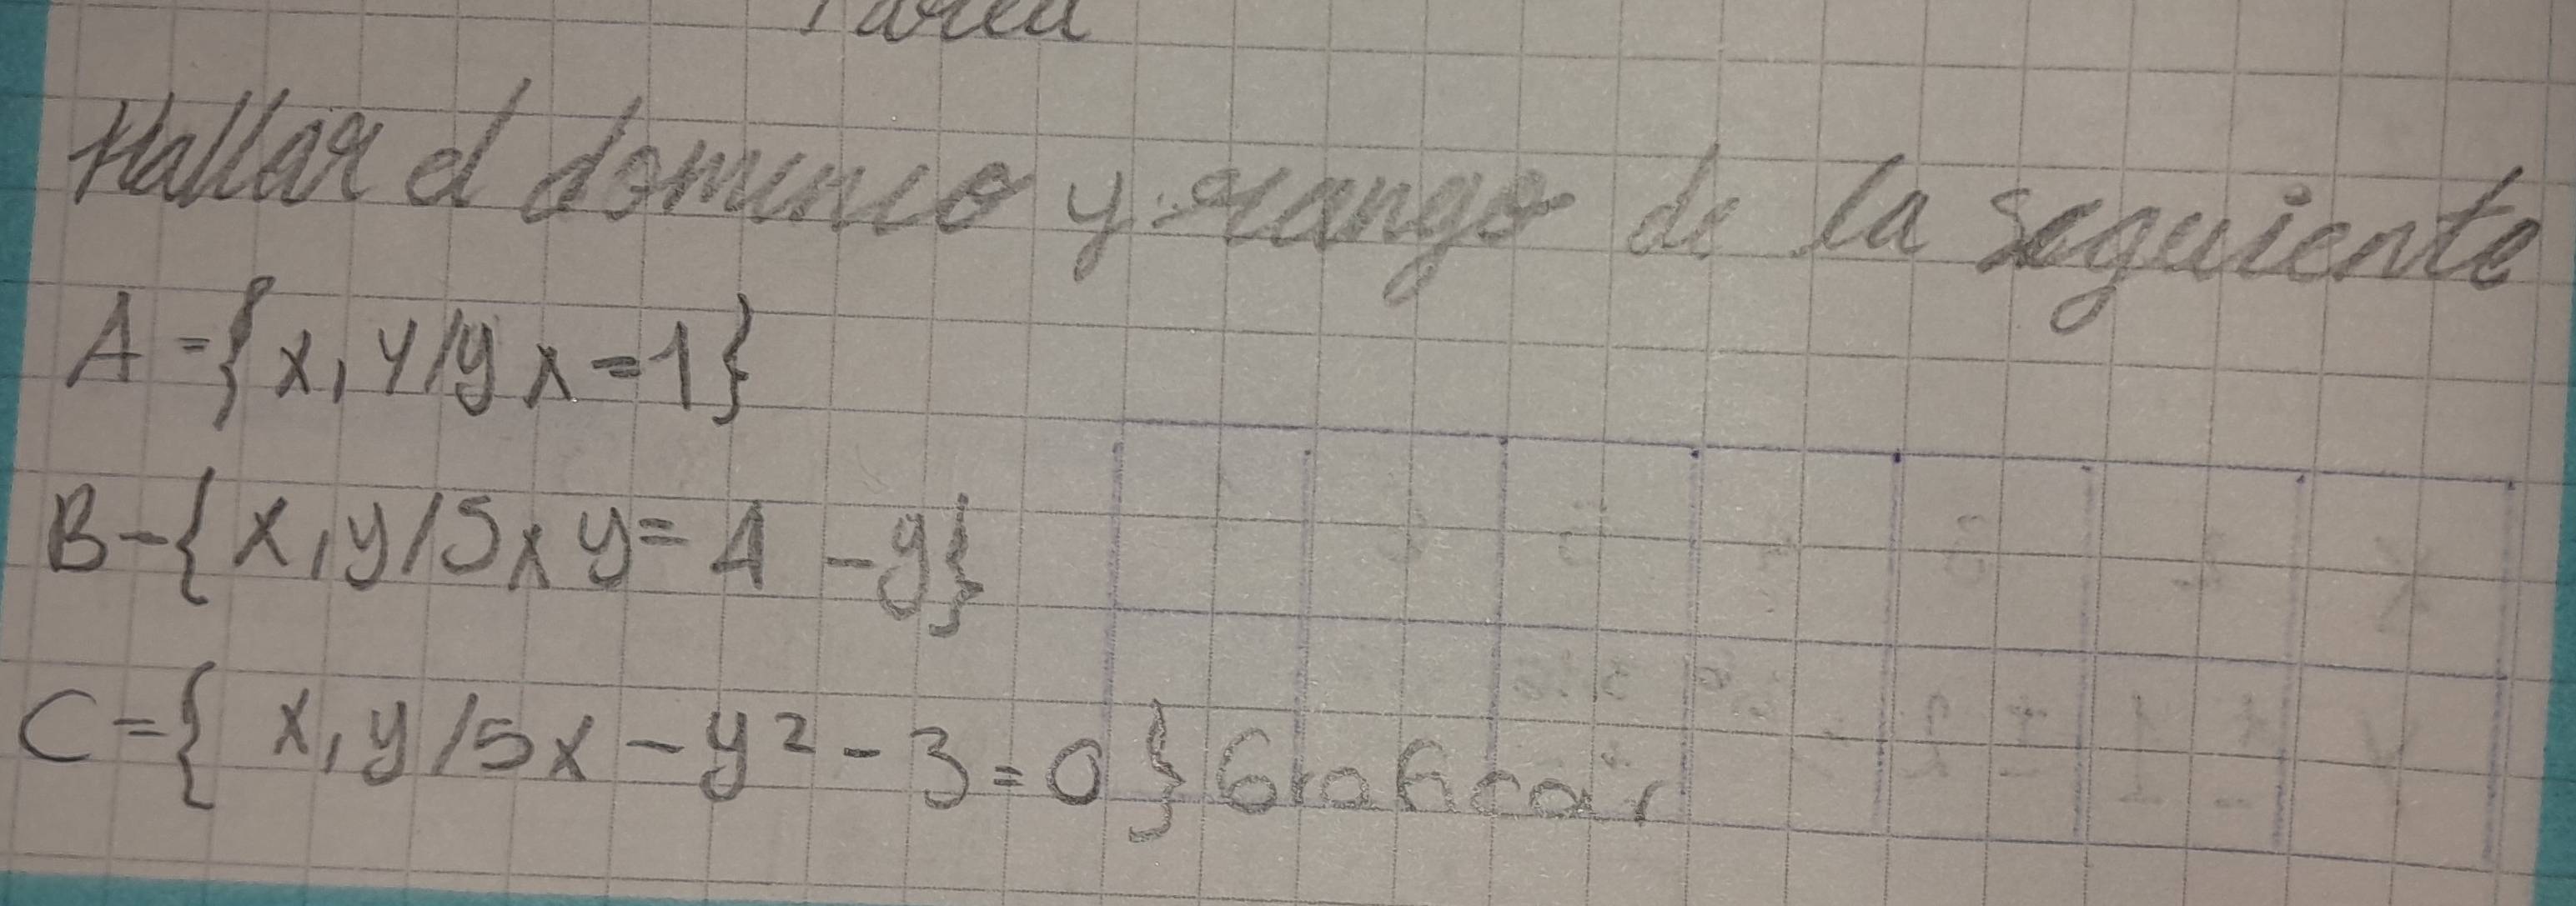 Tarea
Hallar el dominio y rango de la seguiente
A={x,y/yx=1}
B-{x,y/5xy=1-y}
C={x,y/5x-y²-3=0} Graficar